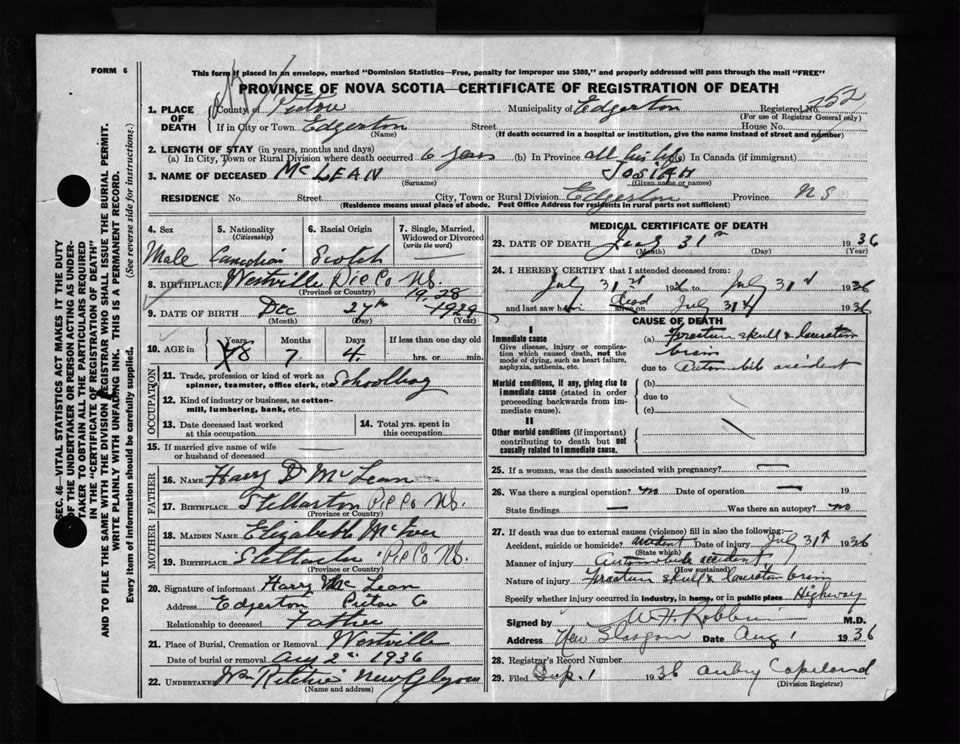 FORM 6
This form if placed in an envelope, marked "Dominion Statistics—Free, penalty for improper use $300," and properly addressed will pass through the mail "FREE"
PROVINCE OF NOVA SCOTIA—CERTIFICATE OF REGISTRATION OF DEATH
1. PLACE OF DEATH County of Pictou Municipality of Edgerton Registered No. 752
(For use of Registrar General only)
If in City or Town Edgerton Street House No.
(Name) (If death occurred in a hospital or institution, give the name instead of street and number)
2. LENGTH OF STAY (in years, months and days)
(a) In City, Town or Rural Division where death occurred 6 years (b) In Province all his life (c) In Canada (if immigrant)
3. NAME OF DECEASED McLEAN JOSIAH
(Surname) (Given name or names)
RESIDENCE No. Street City, Town or Rural Division Edgerton Province NS
(Residence means usual place of abode. Post Office Address for residents in rural parts not sufficient)
4. Sex 5. Nationality (Citizenship) 6. Racial Origin 7. Single, Married, Widowed or Divorced (write the word)
Male Canadian Scotch —
8. BIRTHPLACE Westville Pic Co NS.
(Province or Country)
1928
9. DATE OF BIRTH Dec 27th 1929
(Month) (Day) (Year)
10. AGE in Years Months Days If less than one day old
8 7 4 hrs. or min.
OCCUPATION
11. Trade, profession or kind of work as spinner, teamster, office clerk, etc. Schoolboy
12. Kind of industry or business, as cotton-mill, lumbering, bank, etc.
13. Date deceased last worked at this occupation 14. Total yrs. spent in this occupation
15. If married give name of wife or husband of deceased —
FATHER
16. NAME Harry D McLean
17. BIRTHPLACE Stellarton Pic Co NS.
(Province or Country)
MOTHER
18. MAIDEN NAME Elizabeth McIver
19. BIRTHPLACE Stellarton Pic Co NS.
(Province or Country)
20. Signature of informant Harry McLean
Address Edgerton Pictou Co
Relationship to deceased Father
21. Place of Burial, Cremation or Removal Westville
Date of burial or removal Aug 2nd 1936
22. UNDERTAKER Wm Ritchie New Glasgow
(Name and address)
MEDICAL CERTIFICATE OF DEATH
23. DATE OF DEATH July 31st 1936
(Month) (Day) (Year)
24. I HEREBY CERTIFY that I attended deceased from:
July 31st 1936 to July 31st 1936
and last saw him dead alive on July 31st 1936
CAUSE OF DEATH
I
Immediate cause
Give disease, injury or complication which caused death, not the mode of dying, such as heart failure, asphyxia, asthenia, etc.
(a) Fracture skull & laceration brain
due to Automobile accident
Morbid conditions, if any, giving rise to immediate cause (stated in order proceeding backwards from immediate cause).
(b)
due to
(c)
II
Other morbid conditions (if important) contributing to death but not causally related to immediate cause.
25. If a woman, was the death associated with pregnancy? —
26. Was there a surgical operation? no Date of operation — 19
State findings — Was there an autopsy? no
27. If death was due to external causes (violence) fill in also the following:
Accident, suicide or homicide? accident Date of injury July 31st 1936
(State which)
Manner of injury automobile accident
(How sustained)
Nature of injury Fracture skull & laceration brain
Specify whether injury occurred in industry, in home, or in public place Highway
Signed by W H Robbins M.D.
Address New Glasgow Date Aug 1 1936
28. Registrar's Record Number
29. Filed 1 1936 Copeland
(Division Registrar)
SEC. 46—VITAL STATISTICS ACT MAKES IT THE DUTY
OF THE UNDERTAKER OR PERSON ACTING AS UNDER-
TAKER "TO OBTAIN ALL THE PARTICULARS REQUIRED
IN THE "CERTIFICATE OF REGISTRATION OF DEATH"
AND TO FILE THE SAME WITH THE DIVISION REGISTRAR WHO SHALL ISSUE THE BURIAL PERMIT.
WRITE PLAINLY WITH UNFADING INK. THIS IS A PERMANENT RECORD.
Every item of information should be carefully supplied. (See reverse side for instructions.)